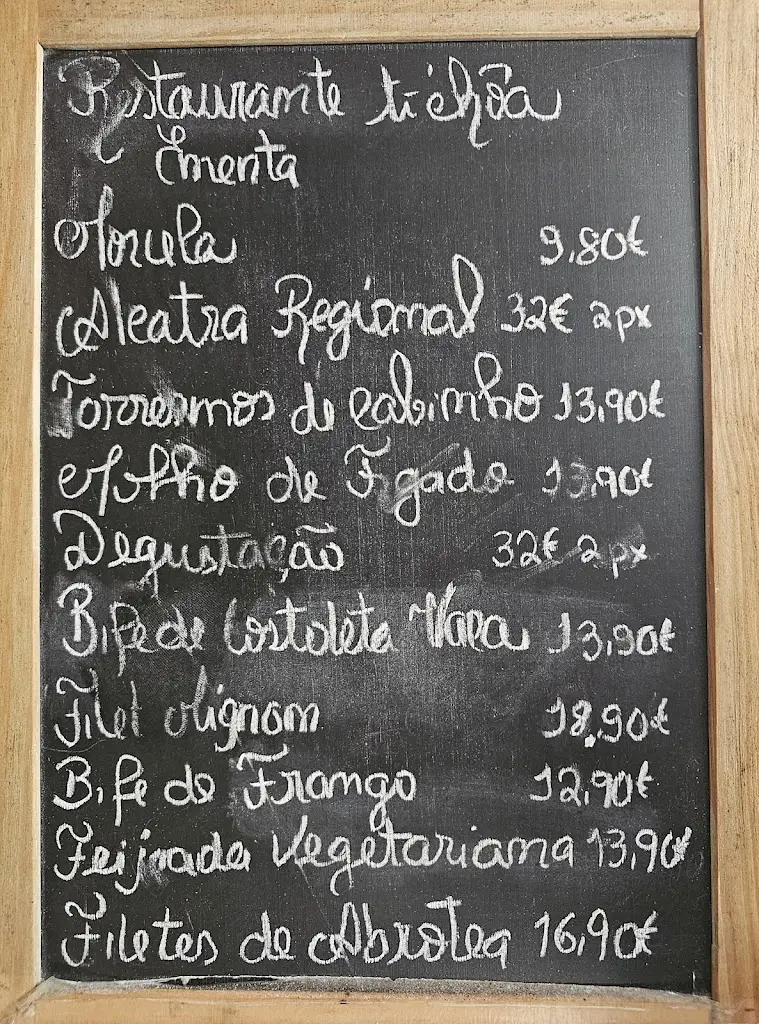 Restaurante ti'chôa
Ementa
Morcela 9,80€
Alcatra Regional 32€ 2px
Torresmos de cabinho 13,90€
Molho de Fígado 13,90€
Degustação 32€ 2px
Bife de Costoleta Vaca 13,90€
Filet Mignom 18,90€
Bife de Frango 12,90€
Feijoada Vegetariana 13,90€
Filetes de Abrotea 16,90€